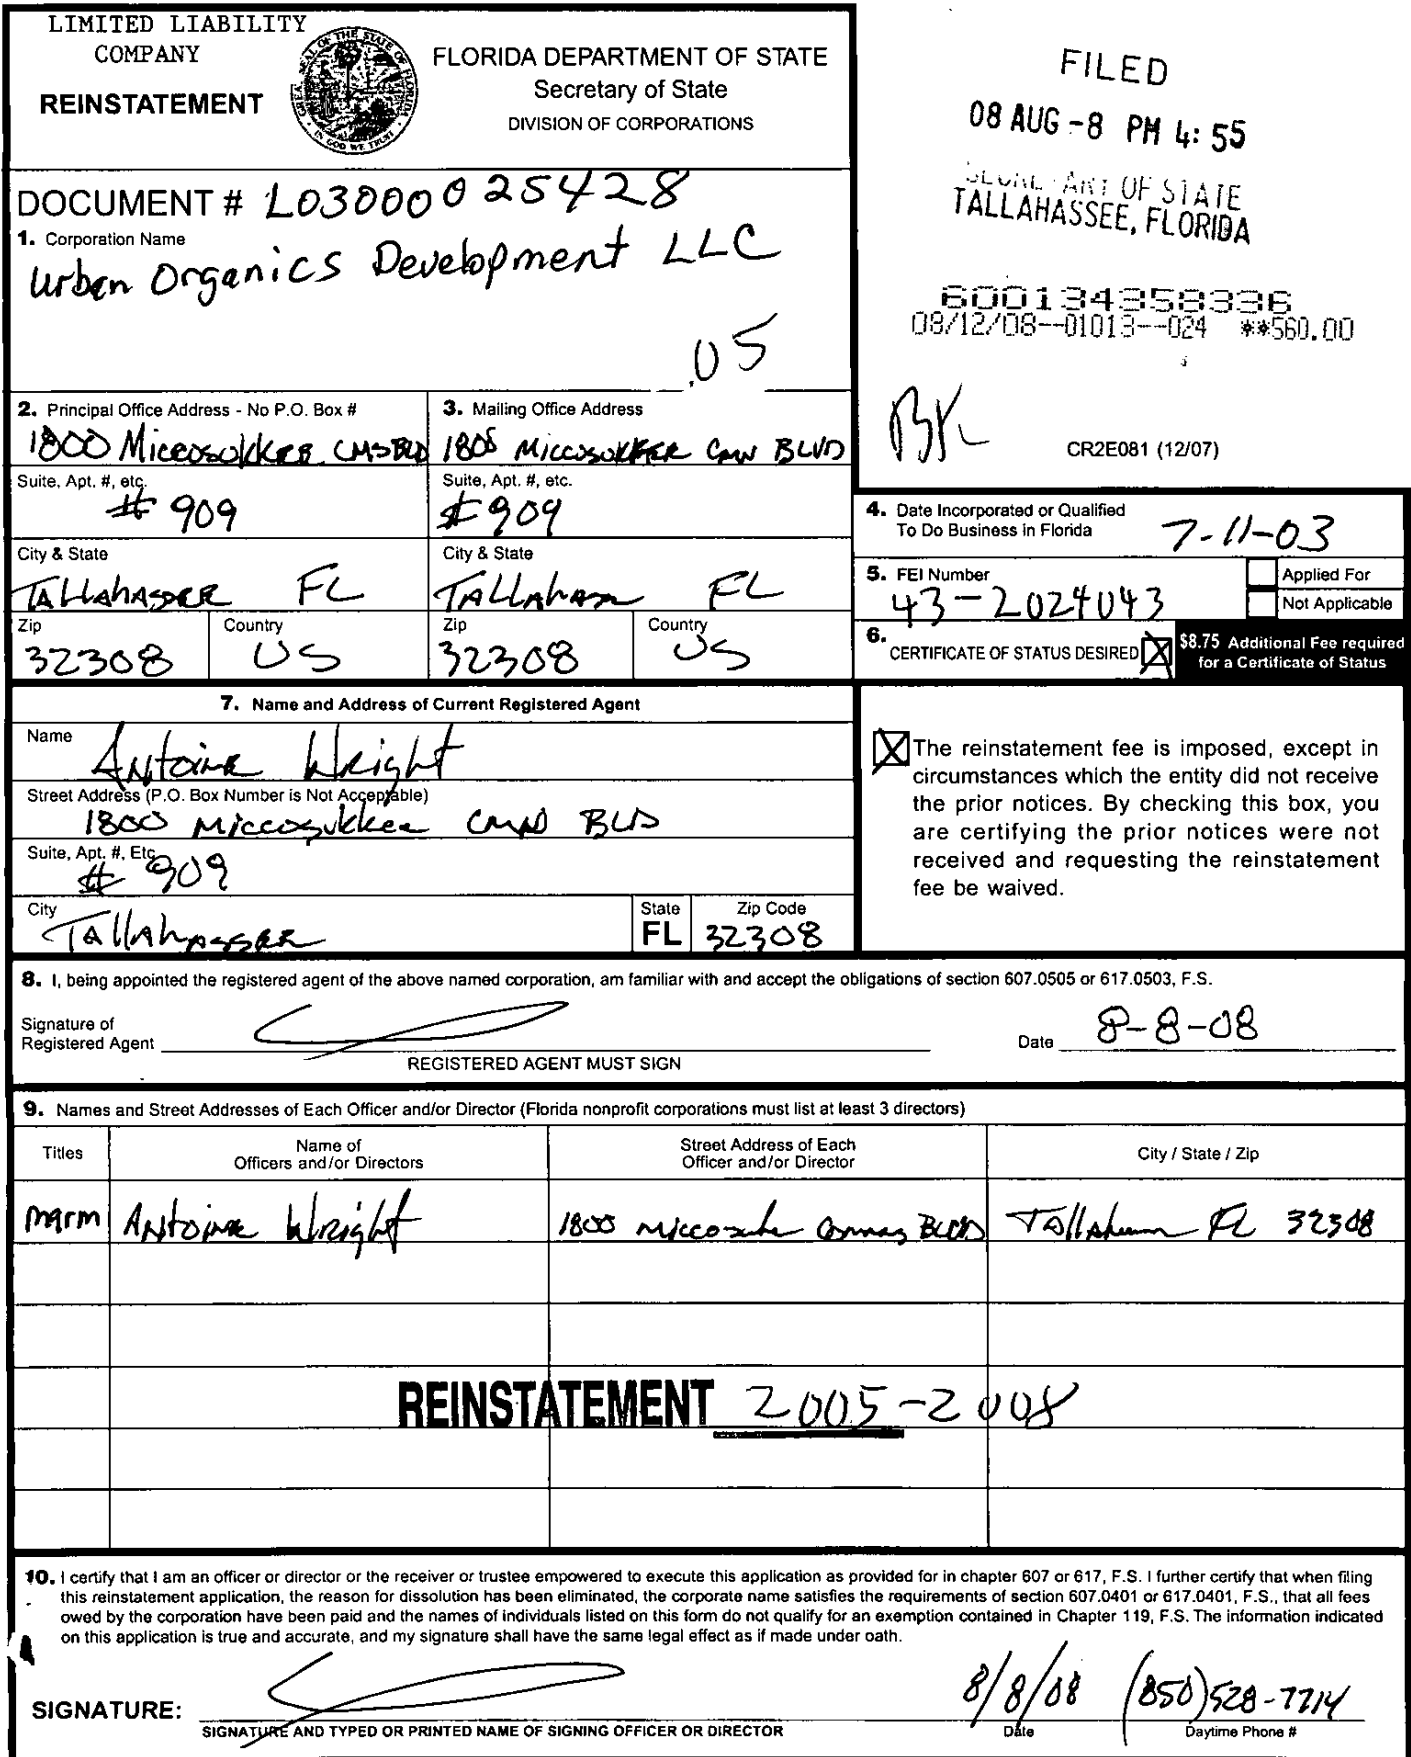 LIMITED LIABILITY
COMPANY
REINSTATEMENT
FLORIDA DEPARTMENT OF STATE
Secretary of State
DIVISION OF CORPORATIONS
FILED
08 AUG -8 PM 4:55
OF STATE
TALLAHASSEE, FLORIDA
600134358336
08/12/08--01013--024 **560.00
CR2E081 (12/07)
DOCUMENT # L03000025428
1. Corporation Name
Urban Organics Development LLC
.05
2. Principal Office Address - No P.O. Box #
1800 Miccosukkee CMS BLD
Suite, Apt. #, etc.
# 909
City & State
TALLAHASSEE FL
Zip
32308
Country
US
3. Mailing Office Address
1800 Miccosukkee CMN BLVD
Suite, Apt. #, etc.
# 909
City & State
TALLAHASSEE FL
Zip
32308
Country
US
4. Date Incorporated or Qualified
To Do Business in Florida
7-11-03
5. FEI Number
43-2024043
Applied For
Not Applicable
6. CERTIFICATE OF STATUS DESIRED
$8.75 Additional Fee required
for a Certificate of Status
7. Name and Address of Current Registered Agent
Name
Antoine Wright
Street Address (P.O. Box Number is Not Acceptable)
1800 Miccosukkee CMN BLD
Suite, Apt. #, Etc.
# 909
City
Tallahassee
State
FL
Zip Code
32308
The reinstatement fee is imposed, except in
circumstances which the entity did not receive
the prior notices. By checking this box, you
are certifying the prior notices were not
received and requesting the reinstatement
fee be waived.
8. I, being appointed the registered agent of the above named corporation, am familiar with and accept the obligations of section 607.0505 or 617.0503, F.S.
Signature of
Registered Agent
REGISTERED AGENT MUST SIGN
Date 8-8-08
9. Names and Street Addresses of Each Officer and/or Director (Florida nonprofit corporations must list at least 3 directors)
Titles
Name of
Officers and/or Directors
Street Address of Each
Officer and/or Director
City / State / Zip
mgrm Antoine Wright 1800 Commons BLVD Tallahassee FL 32308
REINSTATEMENT 2005-2008
10. I certify that I am an officer or director or the receiver or trustee empowered to execute this application as provided for in chapter 607 or 617, F.S. I further certify that when filing
this reinstatement application, the reason for dissolution has been eliminated, the corporate name satisfies the requirements of section 607.0401 or 617.0401, F.S., that all fees
owed by the corporation have been paid and the names of individuals listed on this form do not qualify for an exemption contained in Chapter 119, F.S. The information indicated
on this application is true and accurate, and my signature shall have the same legal effect as if made under oath.
SIGNATURE:
8/8/08 (850)528-7714
SIGNATURE AND TYPED OR PRINTED NAME OF SIGNING OFFICER OR DIRECTOR
Date
Daytime Phone #